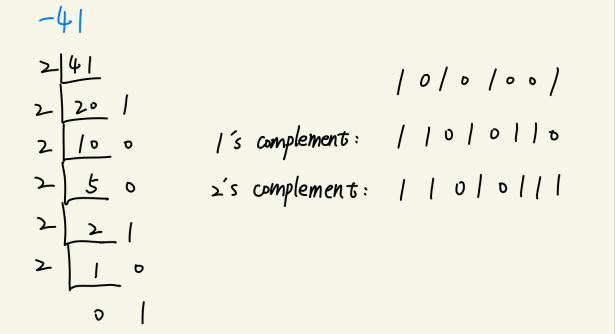 -41
2 41
2 20 1
2 10 0
2 5 0
2 2 1
2 1 0
0 1
1 0 1 0 1 0 0 1
1's complement: 1 1 0 1 0 1 1 0
2's complement: 1 1 0 1 0 1 1 1